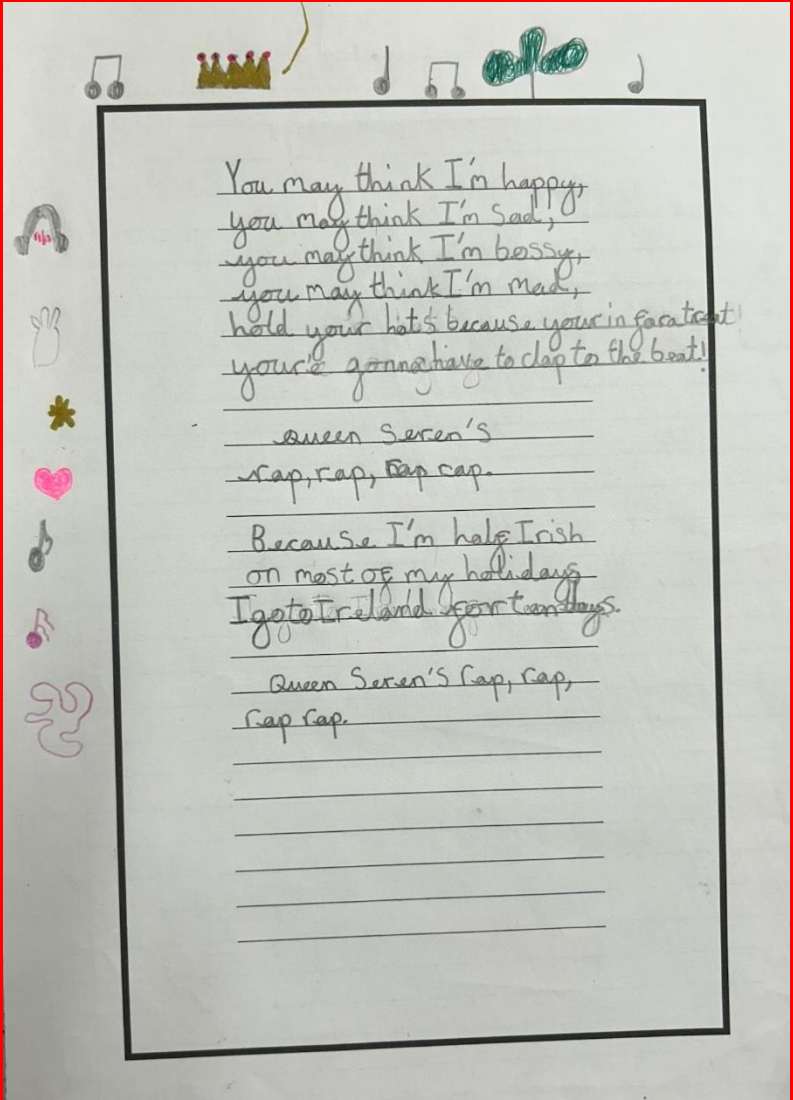 You may think I'm happy,
you may think I'm sad,
you may think I'm bossy,
you may think I'm mad,
hold your hats because your in for a treat!
your'e gonna have to clap to the beat!
Queen Seren's
rap, rap, rap rap.
Because I'm half Irish
on most of my holidays
I go to Ireland for ten days.
Queen Seren's rap, rap,
rap rap.